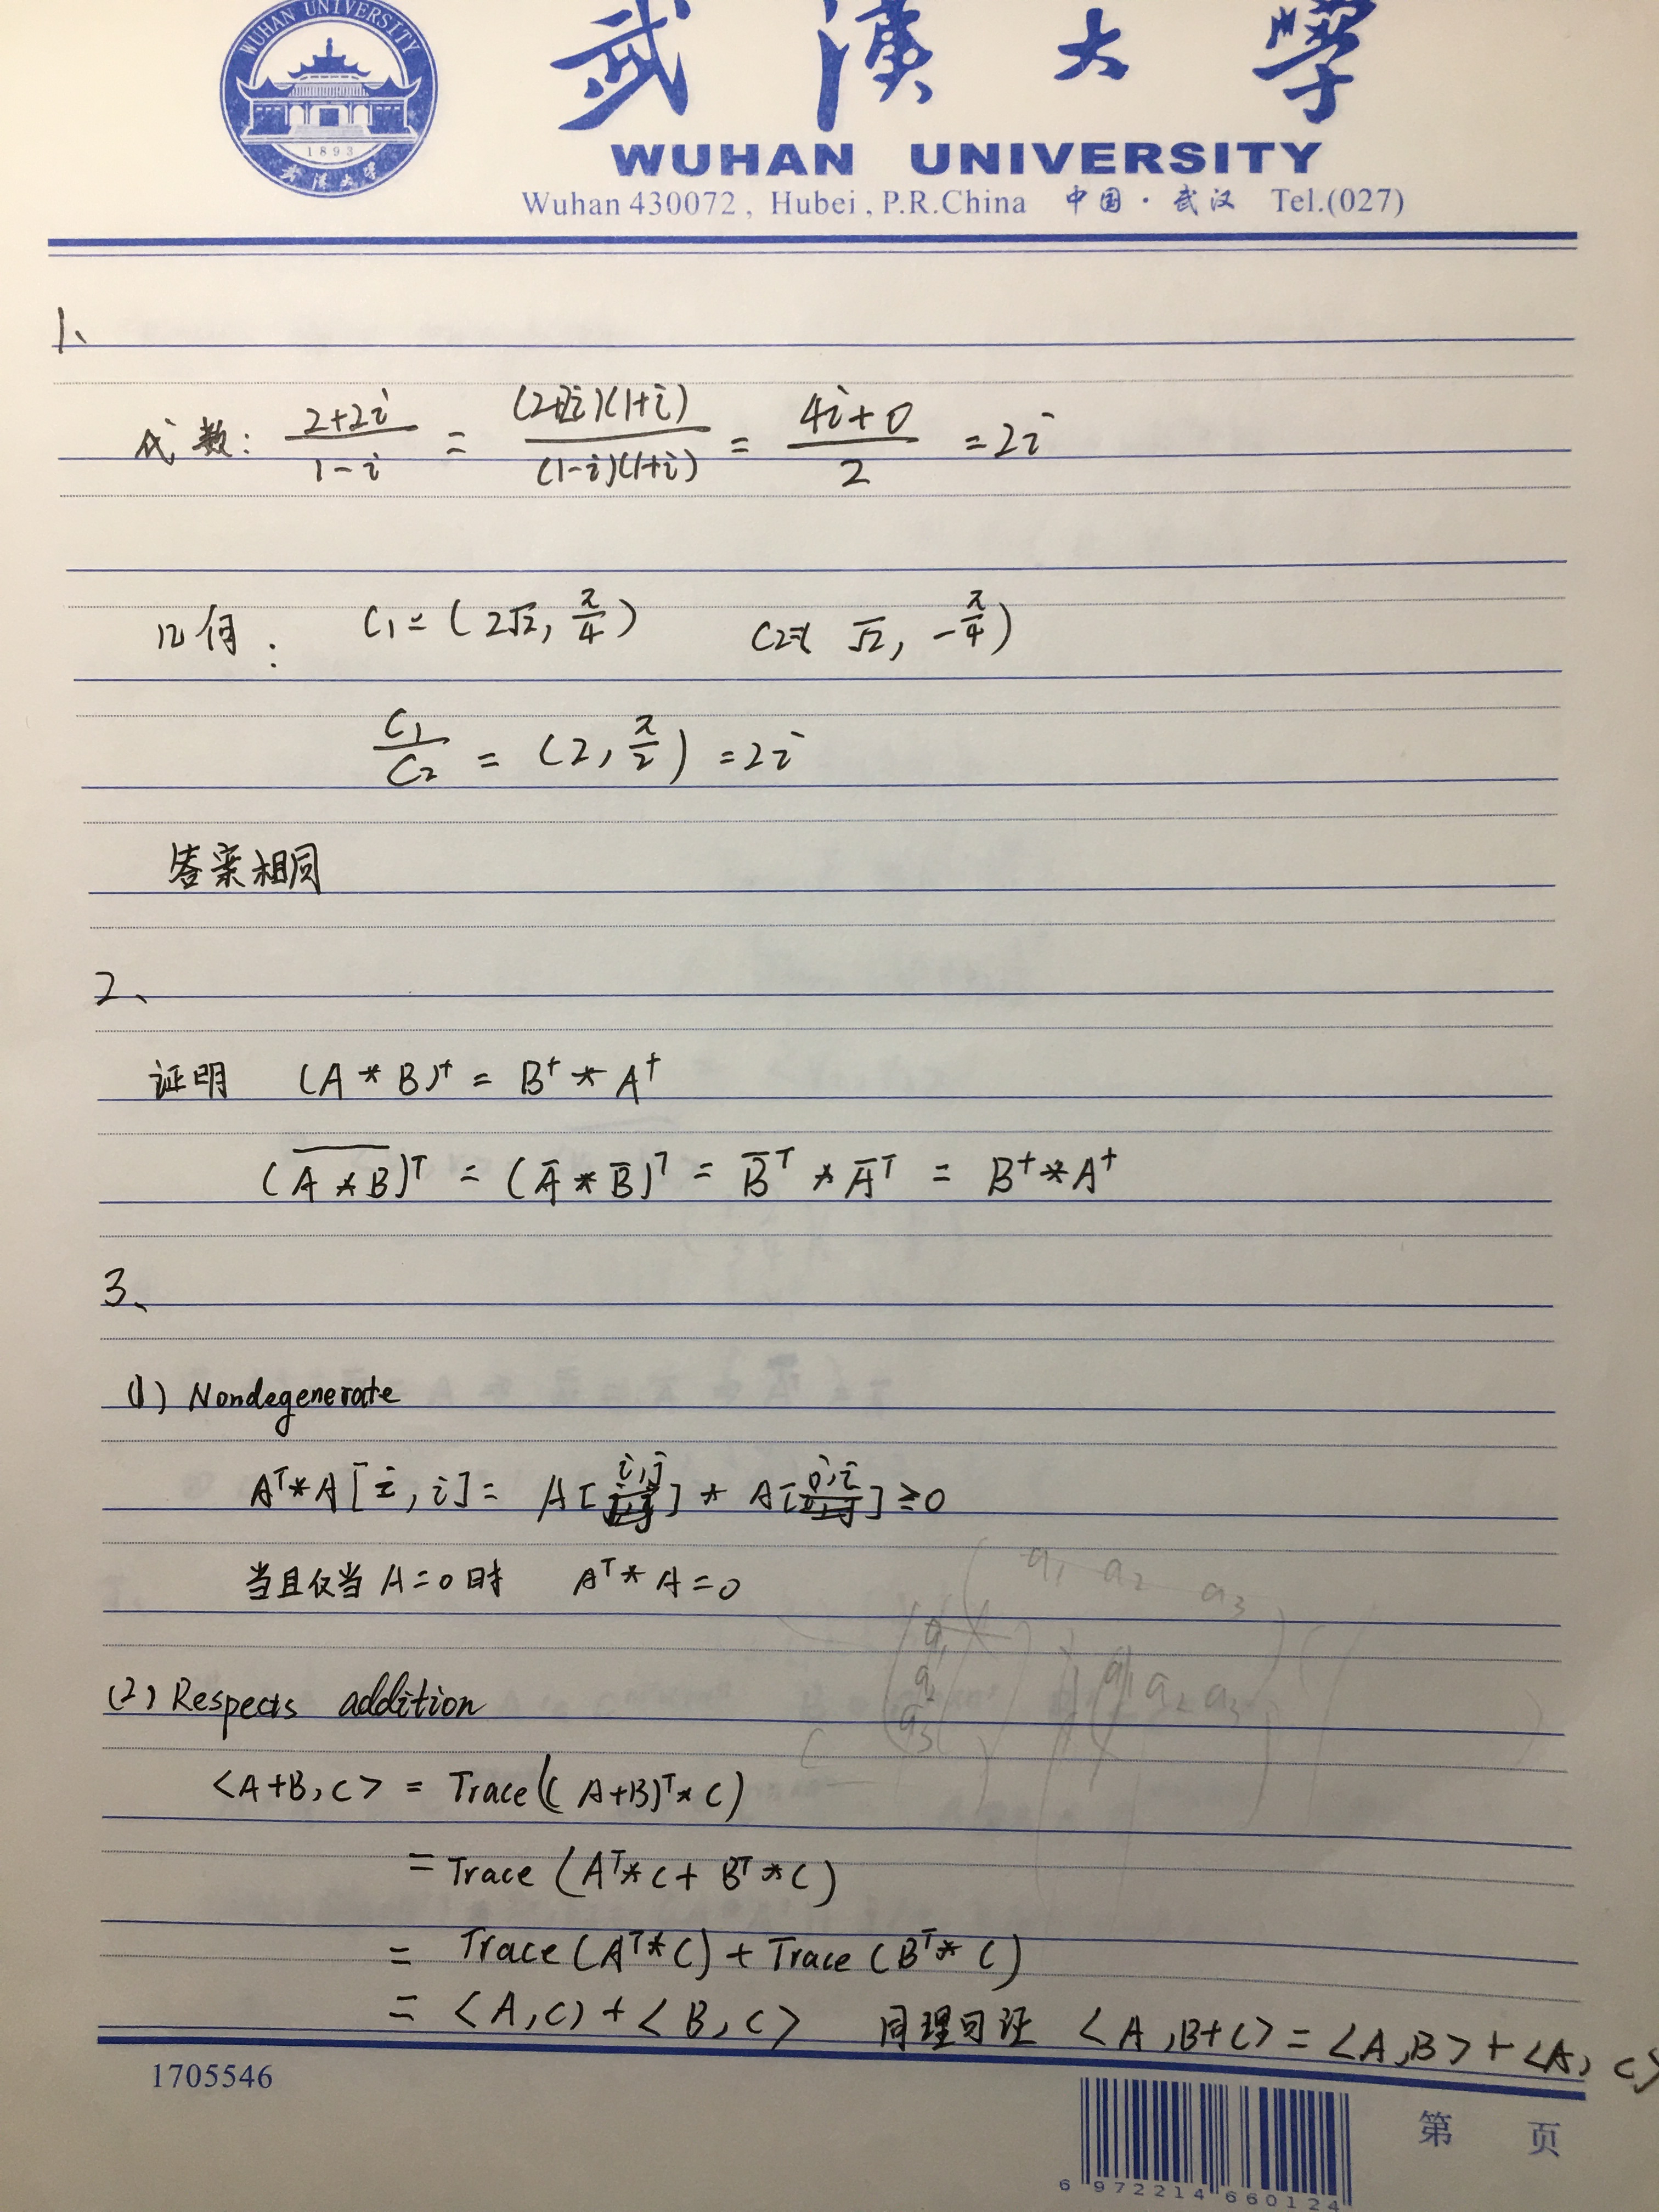 WUHAN UNIVERSITY
1893
武漢大學
武漢大學
WUHAN UNIVERSITY
Wuhan 430072, Hubei, P.R.China 中国·武汉 Tel.(027)
1、
代数: \frac{2+2i}{1-i} = \frac{(2+2i)(1+i)}{(1-i)(1+i)} = \frac{4i+0}{2} = 2i
几何: C₁=(2√2, \frac{π}{4}) C₂=(√2, -\frac{π}{4})
\frac{C₁}{C₂} = (2, \frac{π}{2}) = 2i
答案相同
2、
证明 (A * B)^† = B^† * A^†
(\overline{A * B})^T = (\bar{A} * \bar{B})^T = \bar{B}^T * \bar{A}^T = B^† * A^†
3、
(1) Nondegenerate
A^T * A[i, i] = A[i,j] * A[j,i] ≥ 0
当且仅当 A=0时 A^T * A=0
a₁ a₂ a₃
a₁
a₂ a₁ a₂ a₃
a₃
(2) Respects addition
<A+B, C> = Trace((A+B)^T * C)
= Trace (A^T * C + B^T * C)
= Trace (A^T * C) + Trace (B^T * C)
= <A, C> + <B, C> 同理可证 <A, B+C> = <A, B> + <A, C>
1705546
第 页
6 972214 660124